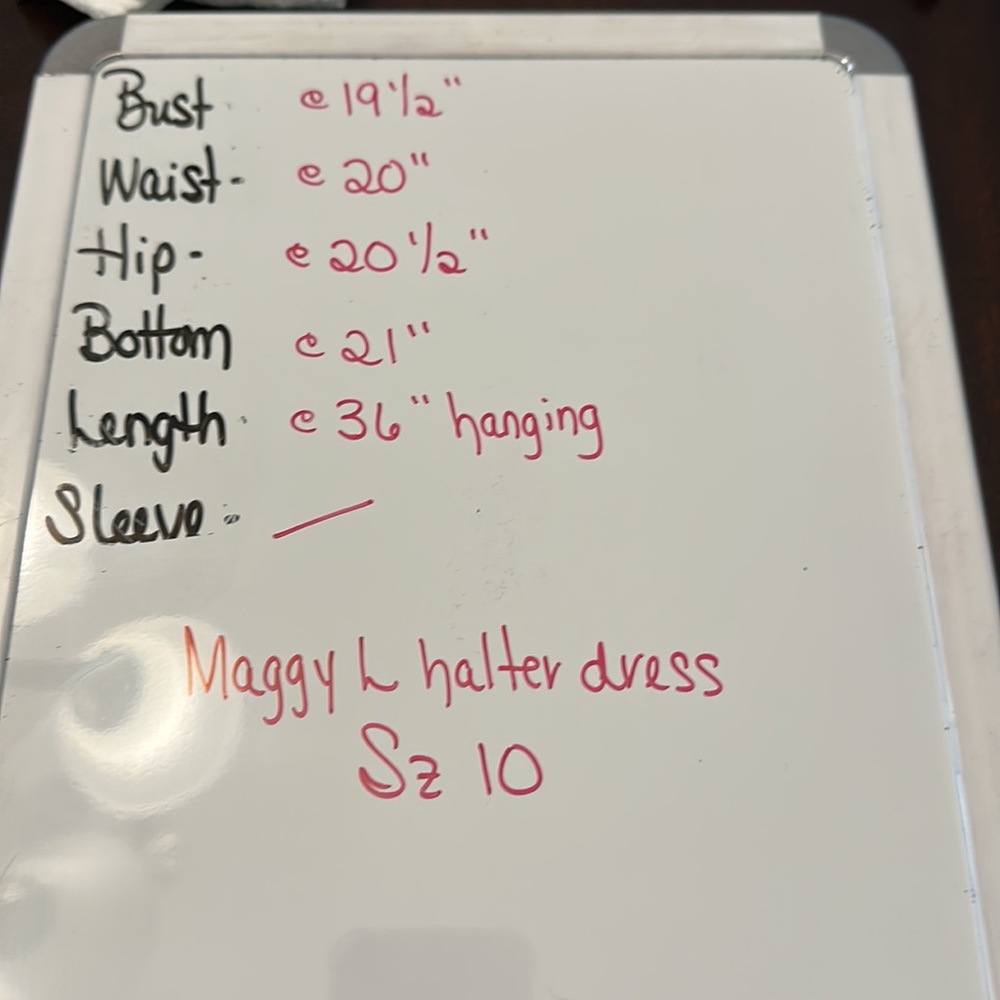 Bust @ 19 1/2"
Waist - @ 20"
Hip - @ 20 1/2"
Bottom @ 21"
Length - @ 36" hanging
Sleeve - —
Maggy L halter dress
Sz 10